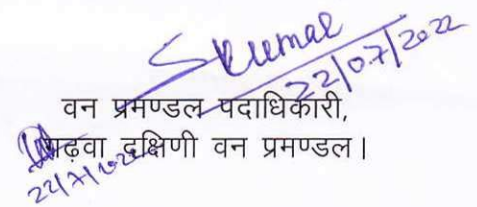 Skumar
22/07/2022
वन प्रमण्डल पदाधिकारी,
गढ़वा दक्षिणी वन प्रमण्डल।
22/7/2022